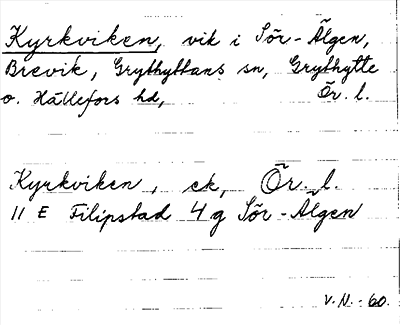 Kyrkviken, vik i Sör-Älgen,
Brevik, Grythyttans sn, Grythytte
o. Hällefors hd, Ör. l.
Kyrkviken, ek, Ör. l.
11 E Filipstad 4 g Sör-Älgen
V.N.-60.